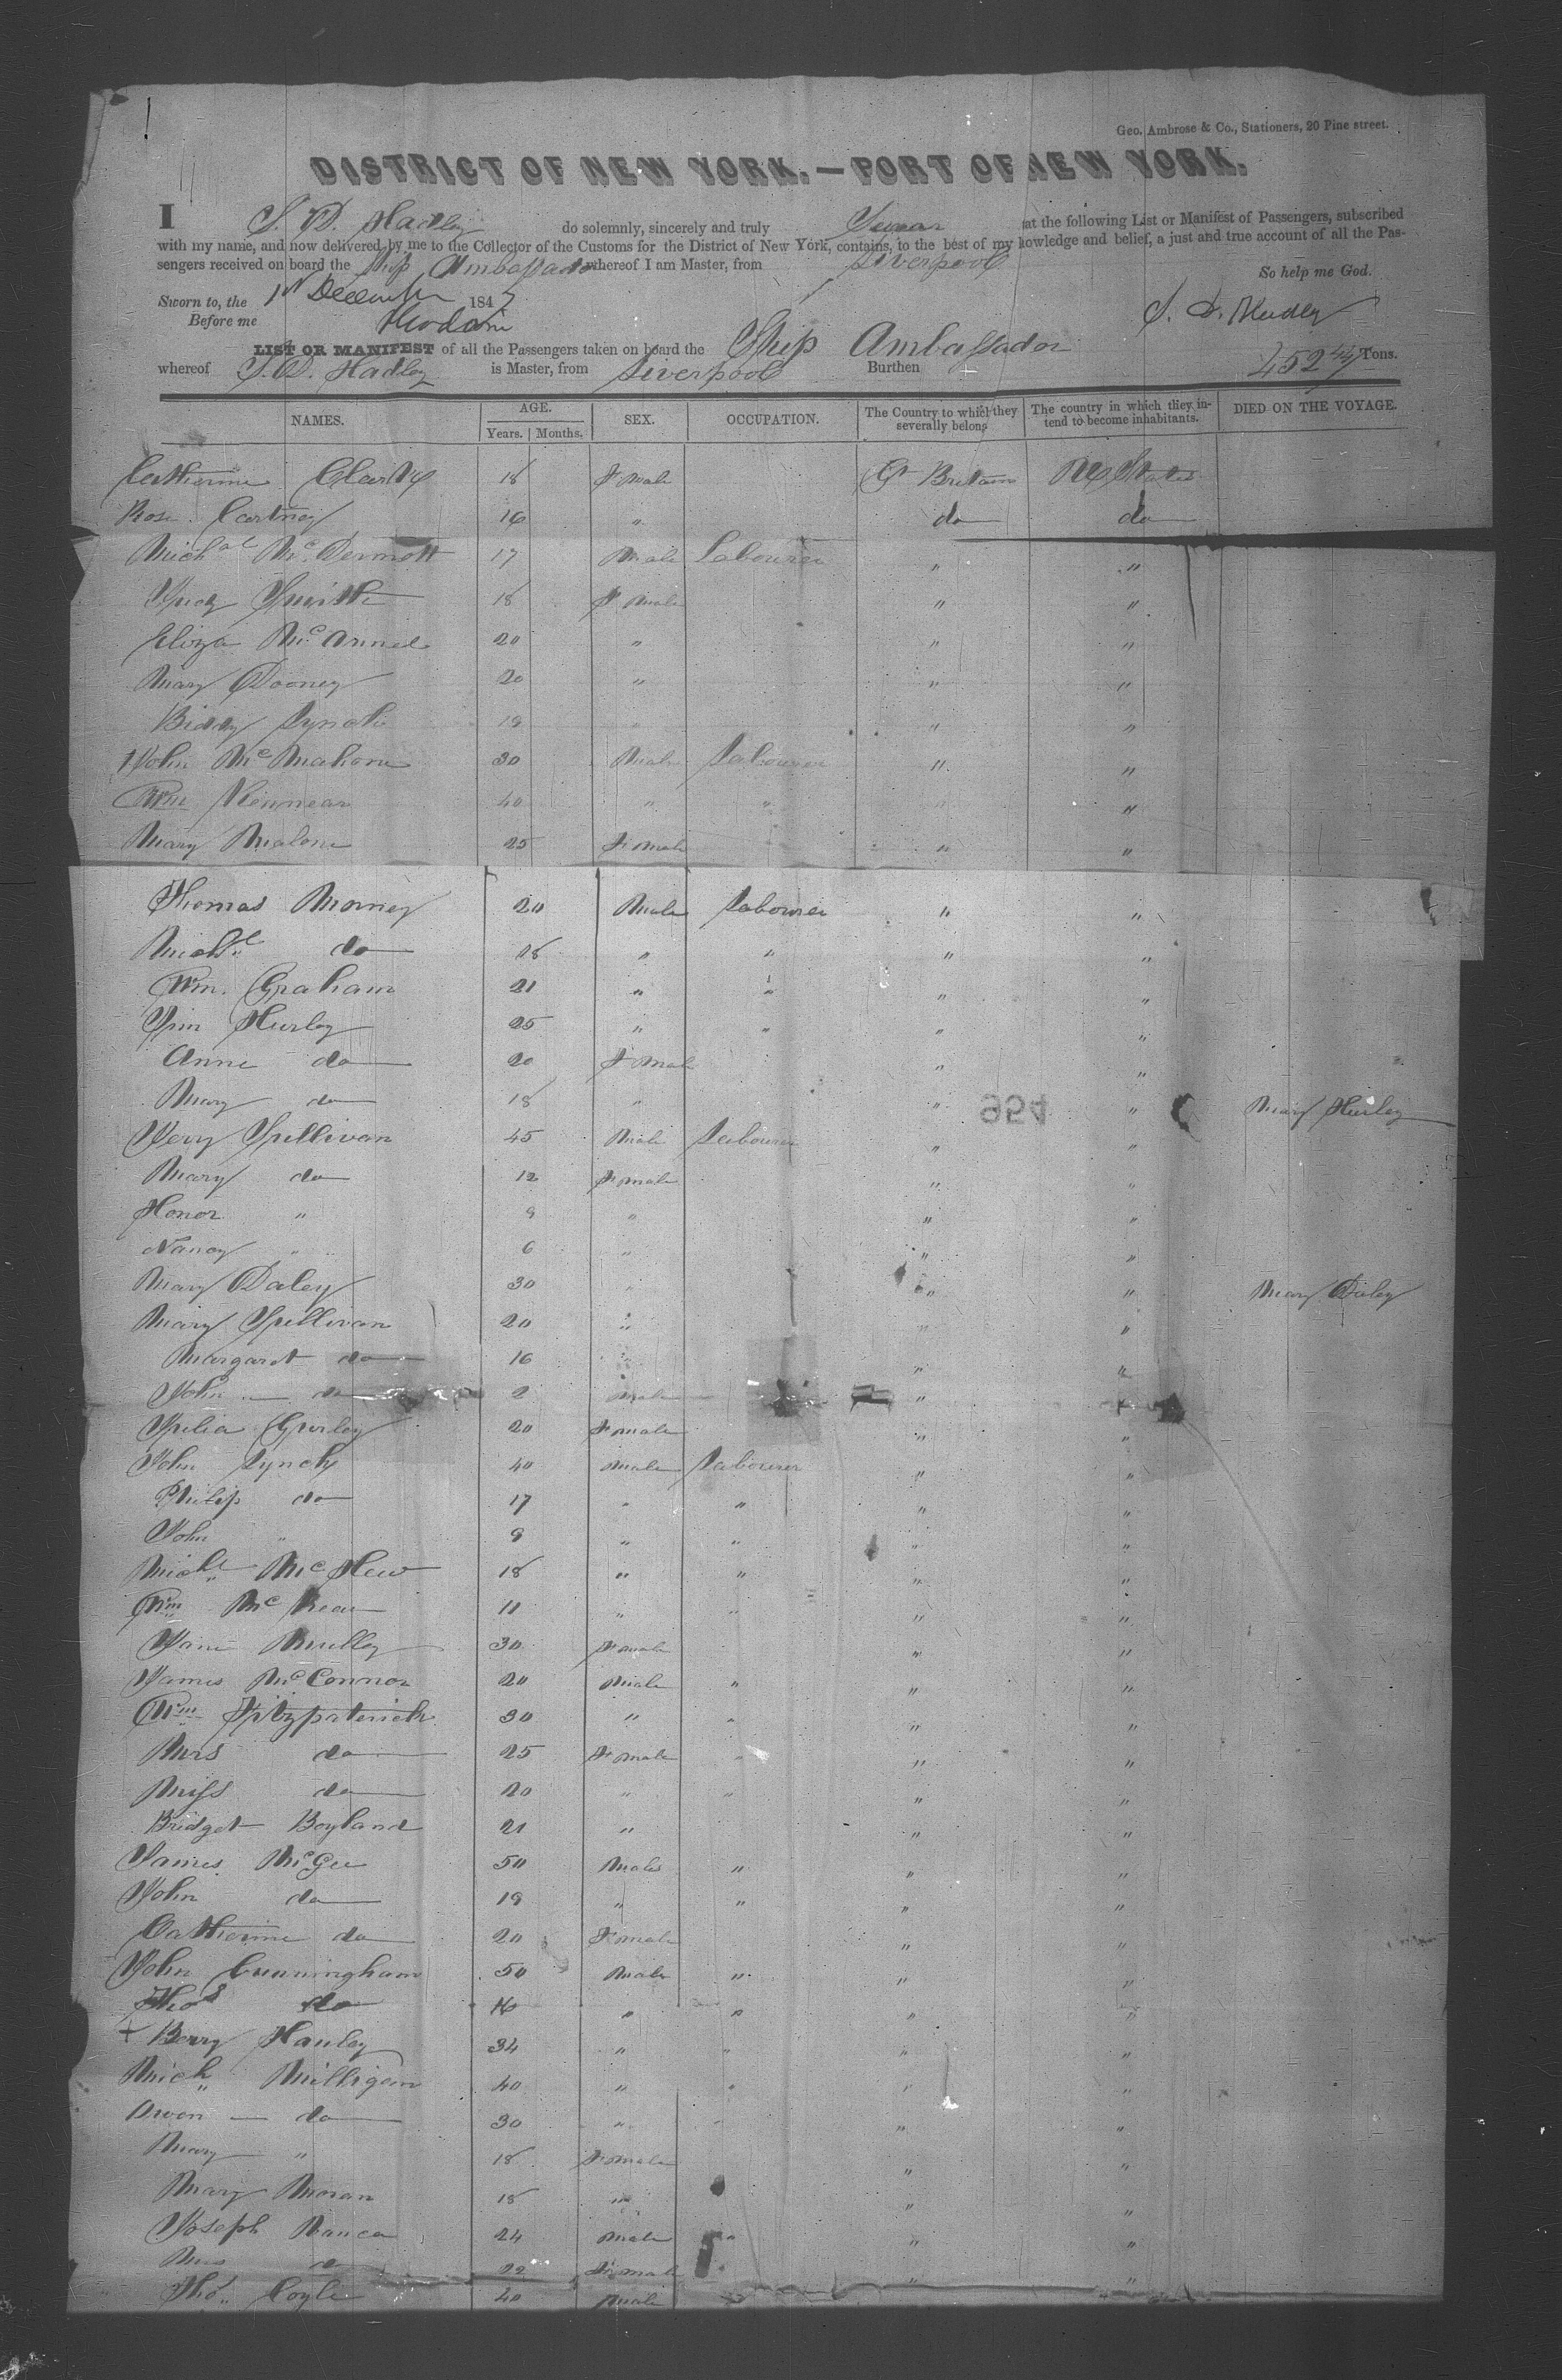 Geo. Ambrose & Co., Stationers, 20 Pine street.
DISTRICT OF NEW YORK.—PORT OF NEW YORK.
I S. D. Hadley do solemnly, sincerely and truly Swear at the following List or Manifest of Passengers, subscribed
with my name, and now delivered by me to the Collector of the Customs for the District of New York, contains, to the best of my nowledge and belief, a just and true account of all the Pas-
sengers received on board the Ship Ambassador whereof I am Master, from Liverpool
So help me God.
Sworn to, the 1st December 1847
Before me
S. D. Hadley
LIST OR MANIFEST of all the Passengers taken on board the Ship Ambassador
whereof S. D. Hadley is Master, from Liverpool Burthen 452 44 Tons.
NAMES. AGE. Years. Months. SEX. OCCUPATION. The Country to which they severally belong The country in which they intend to become inhabitants. DIED ON THE VOYAGE.
Catherine 18 Female Gt Britain States
Rose Cartney 16 " do do
Michael McDermott 17 Male Labourer " "
Judy Smith 18 Female " "
Eliza 20 " " "
Mary Dooney 20 " " "
Biddy Lynch 19 " " "
John McMahone 30 Male Labourer " "
Wm Kennear 40 " " " "
Mary Malone 25 Female " "
Thomas Morney 20 Male Labourer " "
Michl do 18 " " " "
Wm. Graham 21 " " " "
Jim Hurley 25 " " " "
Anne do 20 Female " "
Mary do 18 " " " Mary Hurley
954
Jerry Sullivan 45 Male Labourer " "
Mary do 12 Female " "
Honor " 9 " " "
Nancy " 6 " " "
Mary Daley 30 " " " Mary Daley
Mary Sullivan 20 " " "
Margaret do 16 " " "
John do 2 Male "
Julia Gurley 20 Female " "
John Lynch 40 Male Labourer " "
Philip do 17 " " " "
John " 9 " " " "
Michl McHew 18 " " " "
Wm Mc 11 " " " "
Jane Mulley 30 Female " "
James McConnor 20 Male " " "
Wm Fitzpatrick 30 " " " "
Mrs do 25 Female " " "
Miss do 20 " " " "
Bridget Boyland 21 " " "
James McGee 50 Male " " "
John do 19 " " " "
Catherine do 20 Female " "
John Cunningham 50 Male " " "
Thos do 16 " " " "
+ Berry Hanley 34 " " " "
Mich Milligan 40 " " " "
Owen do 30 " " " "
Mary " 18 Female " "
Mary Moran 18 " " "
Joseph 24 Male " " "
Mrs do 22 Female " "
Thos Coyle 40 Male